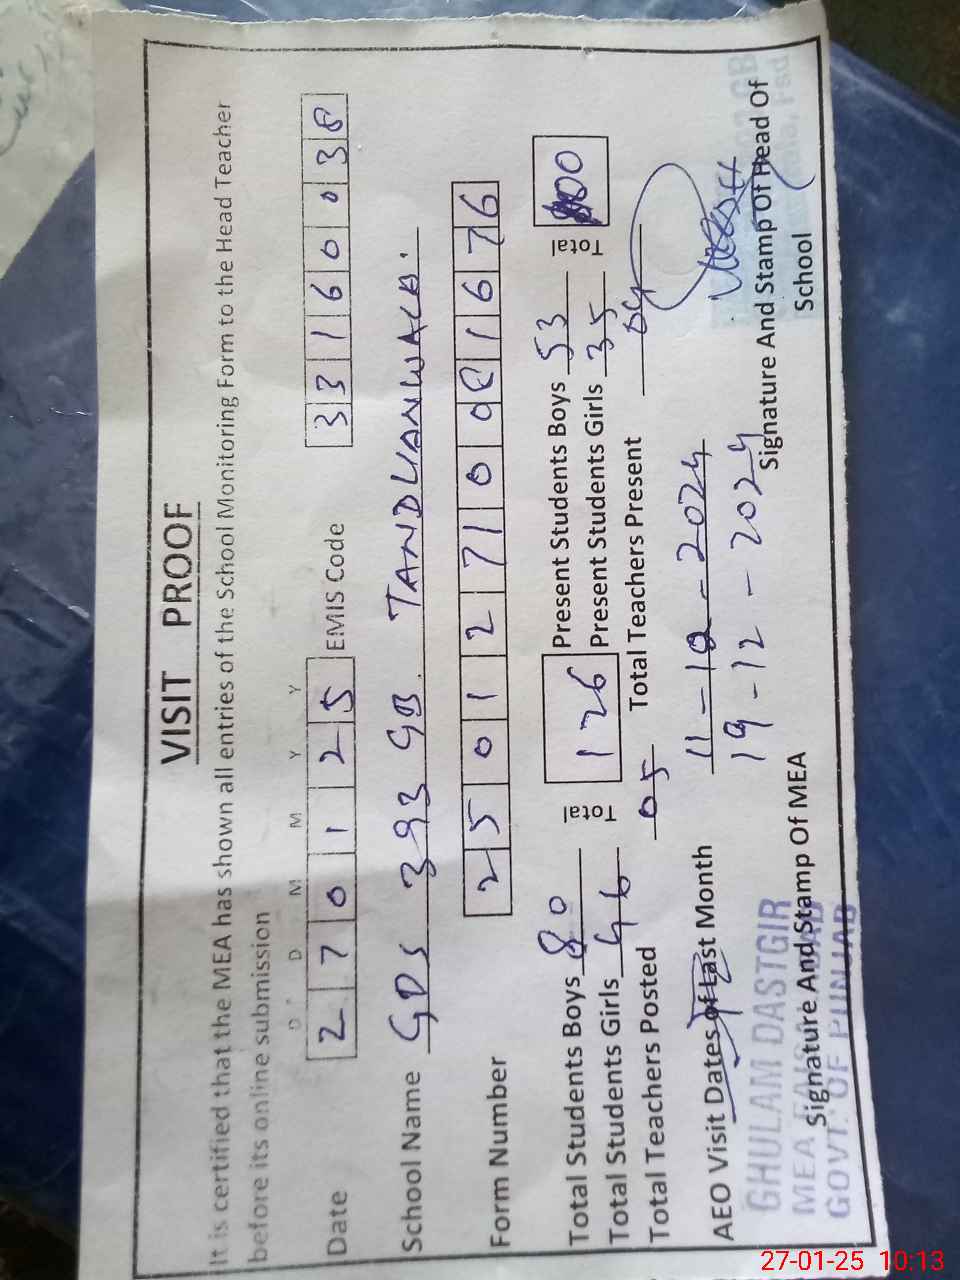 VISIT PROOF
It is certified that the MEA has shown all entries of the School Monitoring Form to the Head Teacher
before its online submission
D D M M Y Y
Date 2 7 0 1 2 5 EMIS Code 3 3 1 6 0 0 3 8
School Name GPS 393 GB TANDLIANWALA.
Form Number 2 5 0 1 2 7 1 0 0 8 1 6 7 6
Total Students Boys 80 Total 126 Present Students Boys 53 Total
Total Students Girls 46 Present Students Girls 35
Total Teachers Posted 05 Total Teachers Present 04
AEO Visit Dates of Last Month 11-12-2024
19-12-2024
GHULAM DASTGIR
Signature And Stamp Of MEA Signature And Stamp Of Head Of
School
MEA
GOVT. OF PUNJAB
27-01-25 10:13